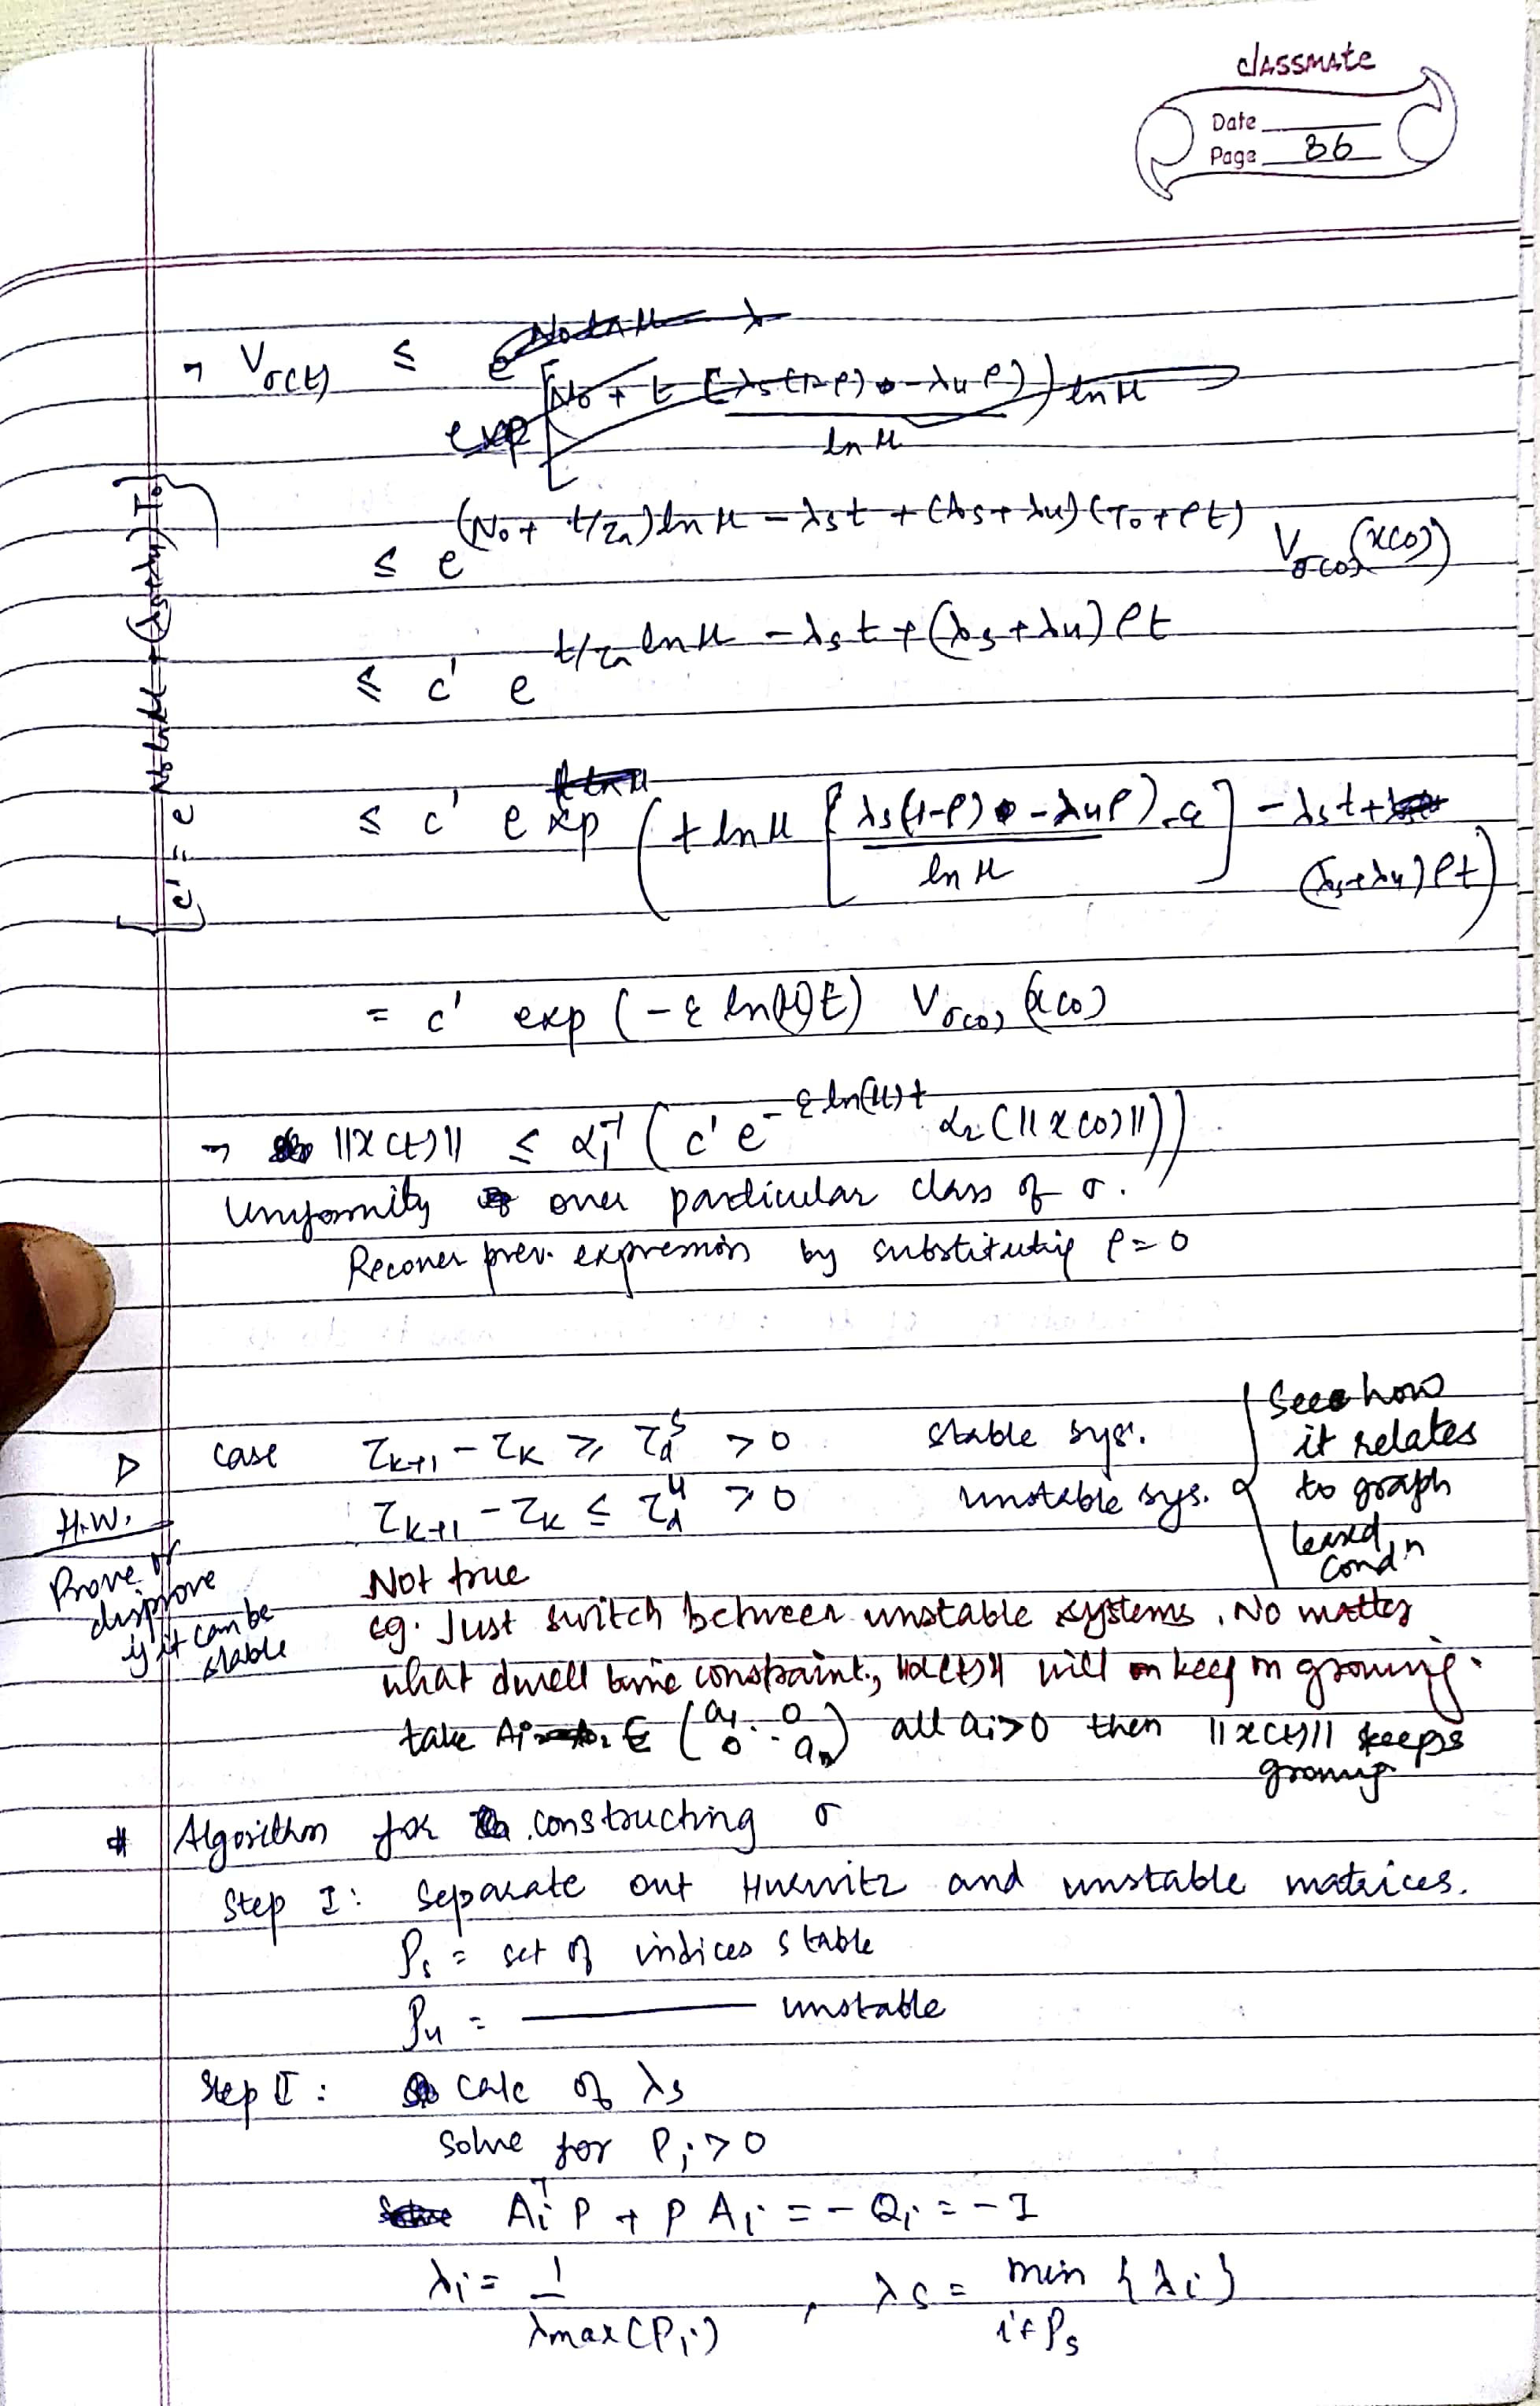 classmate
Date
Page 36
→ V_σ(t) ≤
≤ e^{(N₀ + t/τₐ) ln μ − λₛt + (λₛ + λᵤ)(T₀ + ρt)} V_σ(0)(x(0))
≤ c' e^{t/τₐ ln μ − λₛt + (λₛ + λᵤ)ρt}
{c' = e^{N₀ ln μ + (λₛ + λᵤ)T₀}}
≤ c' exp (t ln μ [(λₛ(1-ρ) − λᵤρ)/ln μ − ε] − λₛt + (λₛ+λᵤ)ρt)
= c' exp (−ε ln(μ)t) V_σ(0)(x(0)
→ ||x(t)|| ≤ α₁⁻¹ (c' e^{−ε ln(μ)t} α₂(||x(0)||))
Uniformity over particular class of σ.
Recover prev. expression by substituting ρ=0
▷ case τ_{k+1} − τ_k ≥ τ_d^s > 0 stable sys.
H.W. τ_{k+1} − τ_k ≤ τ_d^u > 0 unstable sys.
See how
it relates
to graph
based
condⁿ
Prove or
disprove
if it can be
stable
Not true
eg. Just switch between unstable systems. No matter
what dwell time constraint, ||x(t)|| will on keep on growing.
take Aᵢ ∈ (a₁ 0 ⋱ 0 aₙ) all aᵢ>0 then ||x(t)|| keeps
growing
# Algorithm for constructing σ
Step I: Separate out Hurwitz and unstable matrices.
Pₛ = set of indices stable
Pᵤ = ———— unstable
Step II: calc of λₛ
Solve for Pᵢ > 0
Aᵢᵀ P + P Aᵢ = − Qᵢ = − I
λᵢ = 1/λmax(Pᵢ) , λₛ = min_{i∈Pₛ} {λᵢ}